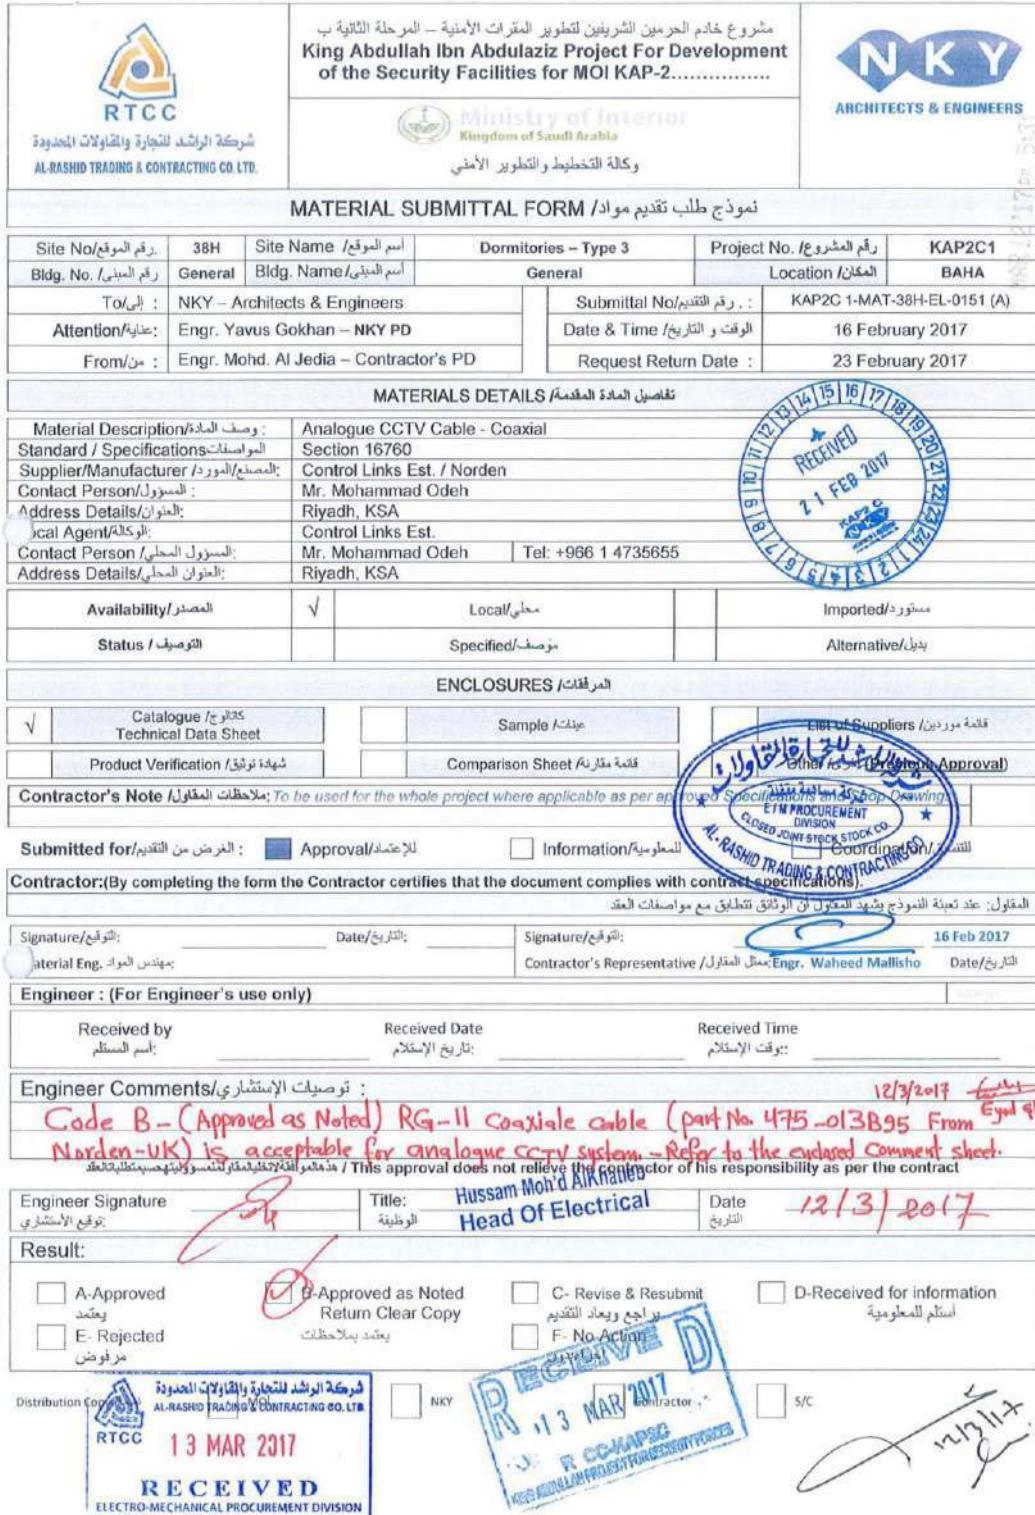 RTCC
شركة الراشد للتجارة والمقاولات المحدودة
AL-RASHID TRADING & CONTRACTING CO. LTD.
مشروع خادم الحرمين الشريفين لتطوير المقرات الأمنية – المرحلة الثانية ب
King Abdullah Ibn Abdulaziz Project For Development
of the Security Facilities for MOI KAP-2................
Ministry of Interior
Kingdom of Saudi Arabia
وكالة التخطيط والتطوير الأمني
NKY
ARCHITECTS & ENGINEERS
MATERIAL SUBMITTAL FORM /نموذج طلب تقديم مواد
Site No/رقم الموقع. 38H Site Name /أسم الموقع Dormitories – Type 3 Project No. /رقم المشروع KAP2C1
Bldg. No. /رقم المبنى General Bldg. Name/أسم المبنى General Location /المكان BAHA
To/إلى : NKY – Architects & Engineers Submittal No/رقم التقديم . : KAP2C 1-MAT-38H-EL-0151 (A)
Attention/عناية: Engr. Yavus Gokhan – NKY PD Date & Time /الوقت و التاريخ 16 February 2017
From/من : Engr. Mohd. Al Jedia – Contractor's PD Request Return Date : 23 February 2017
MATERIALS DETAILS /تفاصيل المادة المقدمة
Material Description/وصف المادة : Analogue CCTV Cable - Coaxial
Standard / Specifications المواصفات Section 16760
Supplier/Manufacturer /المصنع/المورد: Control Links Est. / Norden
Contact Person/المسؤول : Mr. Mohammad Odeh
Address Details/العنوان: Riyadh, KSA
ocal Agent/الوكالة: Control Links Est.
Contact Person /المسؤول المحلي: Mr. Mohammad Odeh Tel: +966 1 4735655
Address Details/العنوان المحلي: Riyadh, KSA
12 13 14 15 16 17 18 19 20 21 22 23 24 1 2 3 4 5 6 7 8 9 10 11
RECEIVED
21 FEB 2017
KAP2 C
Availability/المصدر √ Local/محلي Imported/مستورد
Status / التوصيف Specified/موصف Alternative/بديل
ENCLOSURES /المرفقات
√ Catalogue /كاتالوج
Technical Data Sheet
Sample /عينات
List of Suppliers /قائمة موردين
Product Verification /شهادة توثيق Comparison Sheet /قائمة مقارنة Other /أخرى (Previous Approval)
Contractor's Note /ملاحظات المقاول: To be used for the whole project where applicable as per approved Specifications and Shop Drawings
E / M PROCUREMENT
DIVISION
CLOSED JOINT STOCK STOCK CO.
AL-RASHID TRADING & CONTRACTING CO
Submitted for/الغرض من التقديم : Approval/للإعتماد Information/للمعلومية Coordination/للتنسيق
Contractor:(By completing the form the Contractor certifies that the document complies with contract specifications).
المقاول: عند تعبئة النموذج يشهد المقاول أن الوثائق تتطابق مع مواصفات العقد
Signature/التوقيع: Date/التاريخ: Signature/التوقيع: 16 Feb 2017
aterial Eng. مهندس المواد: Contractor's Representative /ممثل المقاول: Engr. Waheed Mallisho Date/التاريخ
Engineer : (For Engineer's use only)
Received by Received Date Received Time
أسم المستلم: تاريخ الإستلام: وقت الإستلام::
Engineer Comments/توصيات الإستشاري : 12/3/2017
Code B - (Approved as Noted) RG-11 Coaxiale cable (part No. 475-013B95 From
Norden-UK) is acceptable for analogue CCTV system. - Refer to the enclosed Comment sheet.
This approval does not relieve the contractor of his responsibility as per the contract
Engineer Signature Title: Hussam Moh'd AlKhatieb Date 12/3/2017
توقيع الأستشاري: الوظيفة Head Of Electrical التاريخ
Result:
A-Approved B-Approved as Noted C- Revise & Resubmit D-Received for information
يعتمد Return Clear Copy يراجع ويعاد التقديم أستلم للمعلومية
E- Rejected يعتمد بملاحظات F- No Action
مرفوض
Distribution NKY Contractor S/C
RTCC
شركة الراشد للتجارة والمقاولات المحدودة
AL-RASHID TRADING & CONTRACTING CO. LTD.
13 MAR 2017
RECEIVED
ELECTRO-MECHANICAL PROCUREMENT DIVISION
RECEIVED
13 MAR 2017
12/3/17